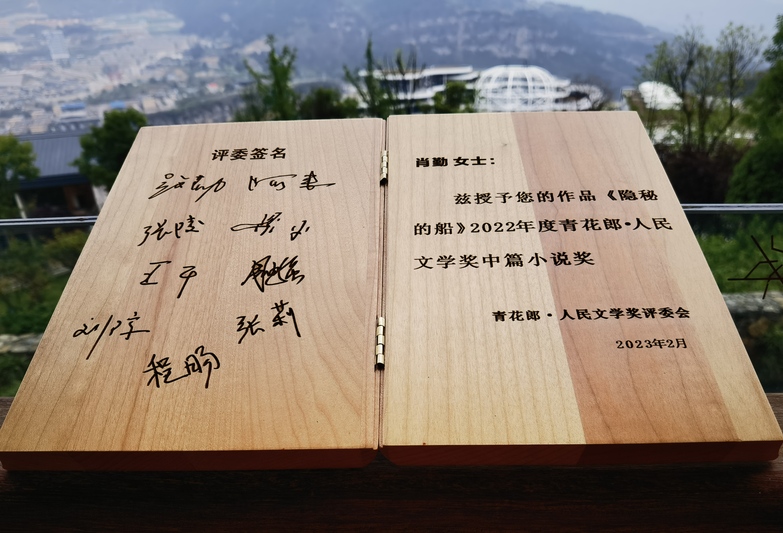 评委签名
张陵
王干
刘琼 张莉
程旸
肖勤 女士：
兹授予您的作品《隐秘
的船》2022年度青花郎·人民
文学奖中篇小说奖
青花郎·人民文学奖评委会
2023年2月